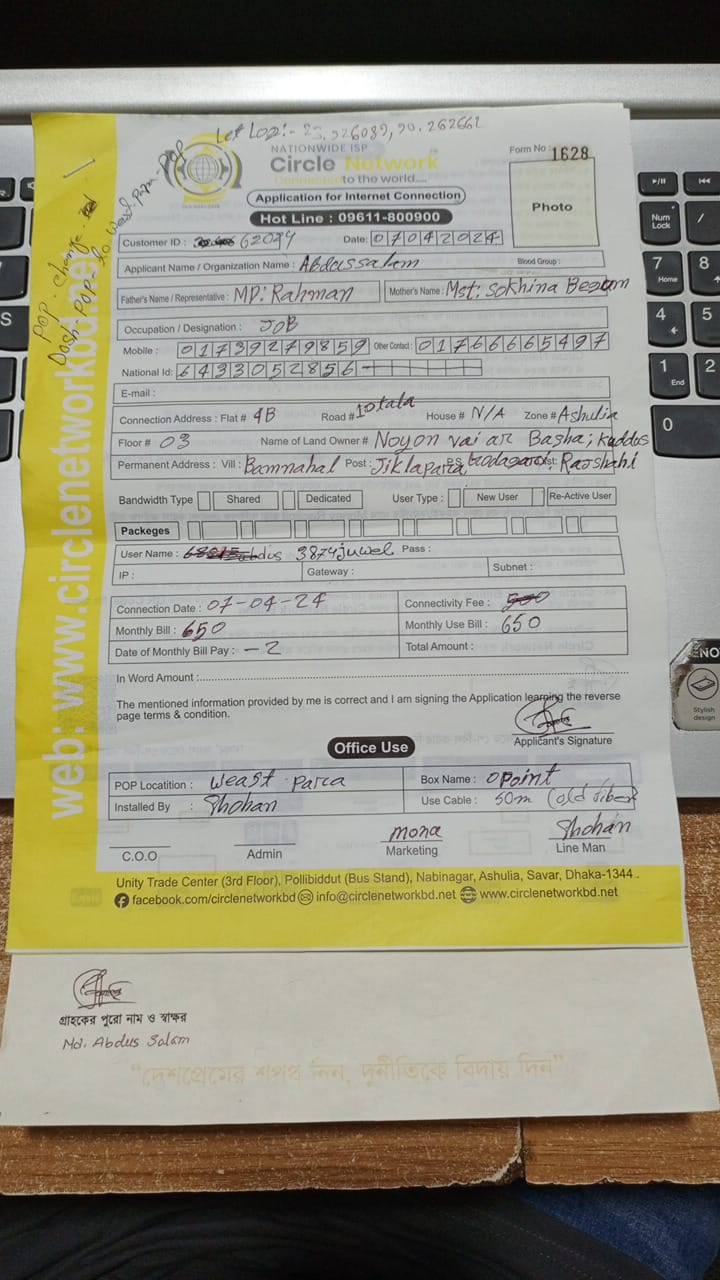 Let Log:- 23.926089, 90.262662
POP. change.
Dash POP to West Para POP
NATIONWIDE ISP
Circle Network
Connected to the world....
Form No : 1628
Photo
Application for Internet Connection
Hot Line : 09611-800900
Customer ID : 62074 Date: 07042024
Applicant Name / Organization Name : Abdussalam Blood Group :
Father's Name / Representative : MD: Rahman Mother's Name : Mst: Sokhina Begum
Occupation / Designation : JOB
Mobile : 01739279859 Other Contact : 01766665497
National Id: 6433052856
E-mail :
Connection Address : Flat # 4B Road # 10tala House # N/A Zone # Ashulia
Floor # 03 Name of Land Owner # Noyon vai ar Basha; kuddus
Permanent Address : Vill : Bamnahal Post : Jiklapara P.S Godagari Dist: Rajshahi
Bandwidth Type Shared Dedicated User Type : New User Re-Active User
Packeges
User Name : 3874juwel Pass :
IP : Gateway : Subnet :
Connection Date : 07-04-24 Connectivity Fee : 500
Monthly Bill : 650 Monthly Use Bill : 650
Date of Monthly Bill Pay : -2 Total Amount :
In Word Amount :
The mentioned information provided by me is correct and I am signing the Application learning the reverse
page terms & condition.
Applicant's Signature
Office Use
POP Locatition : Weast Para Box Name : 0Point
Installed By : Shohan Use Cable : 50m (old fiber
mona Shohan
C.O.O Admin Marketing Line Man
Unity Trade Center (3rd Floor), Pollibiddut (Bus Stand), Nabinagar, Ashulia, Savar, Dhaka-1344 .
facebook.com/circlenetworkbd info@circlenetworkbd.net www.circlenetworkbd.net
web: www.circlenetworkbd.net
গ্রাহকের পুরো নাম ও স্বাক্ষর
Md. Abdus Salam
“দেশপ্রেমের শপথ নিন, দুর্নীতিকে বিদায় দিন”
Num
Lock
7
Home
8
4
5
1
End
2
0
S
Stylish
design